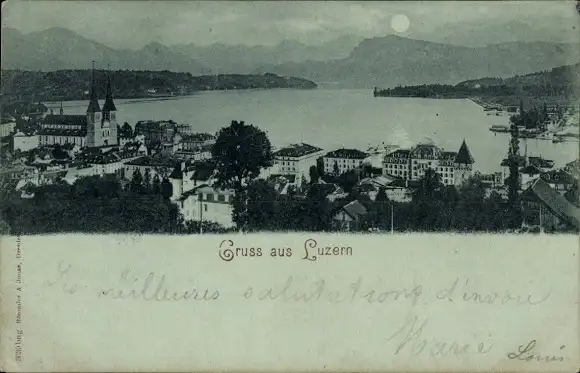 Gruss aus Luzern
meilleures salutations d'envoie
Marie
Louis